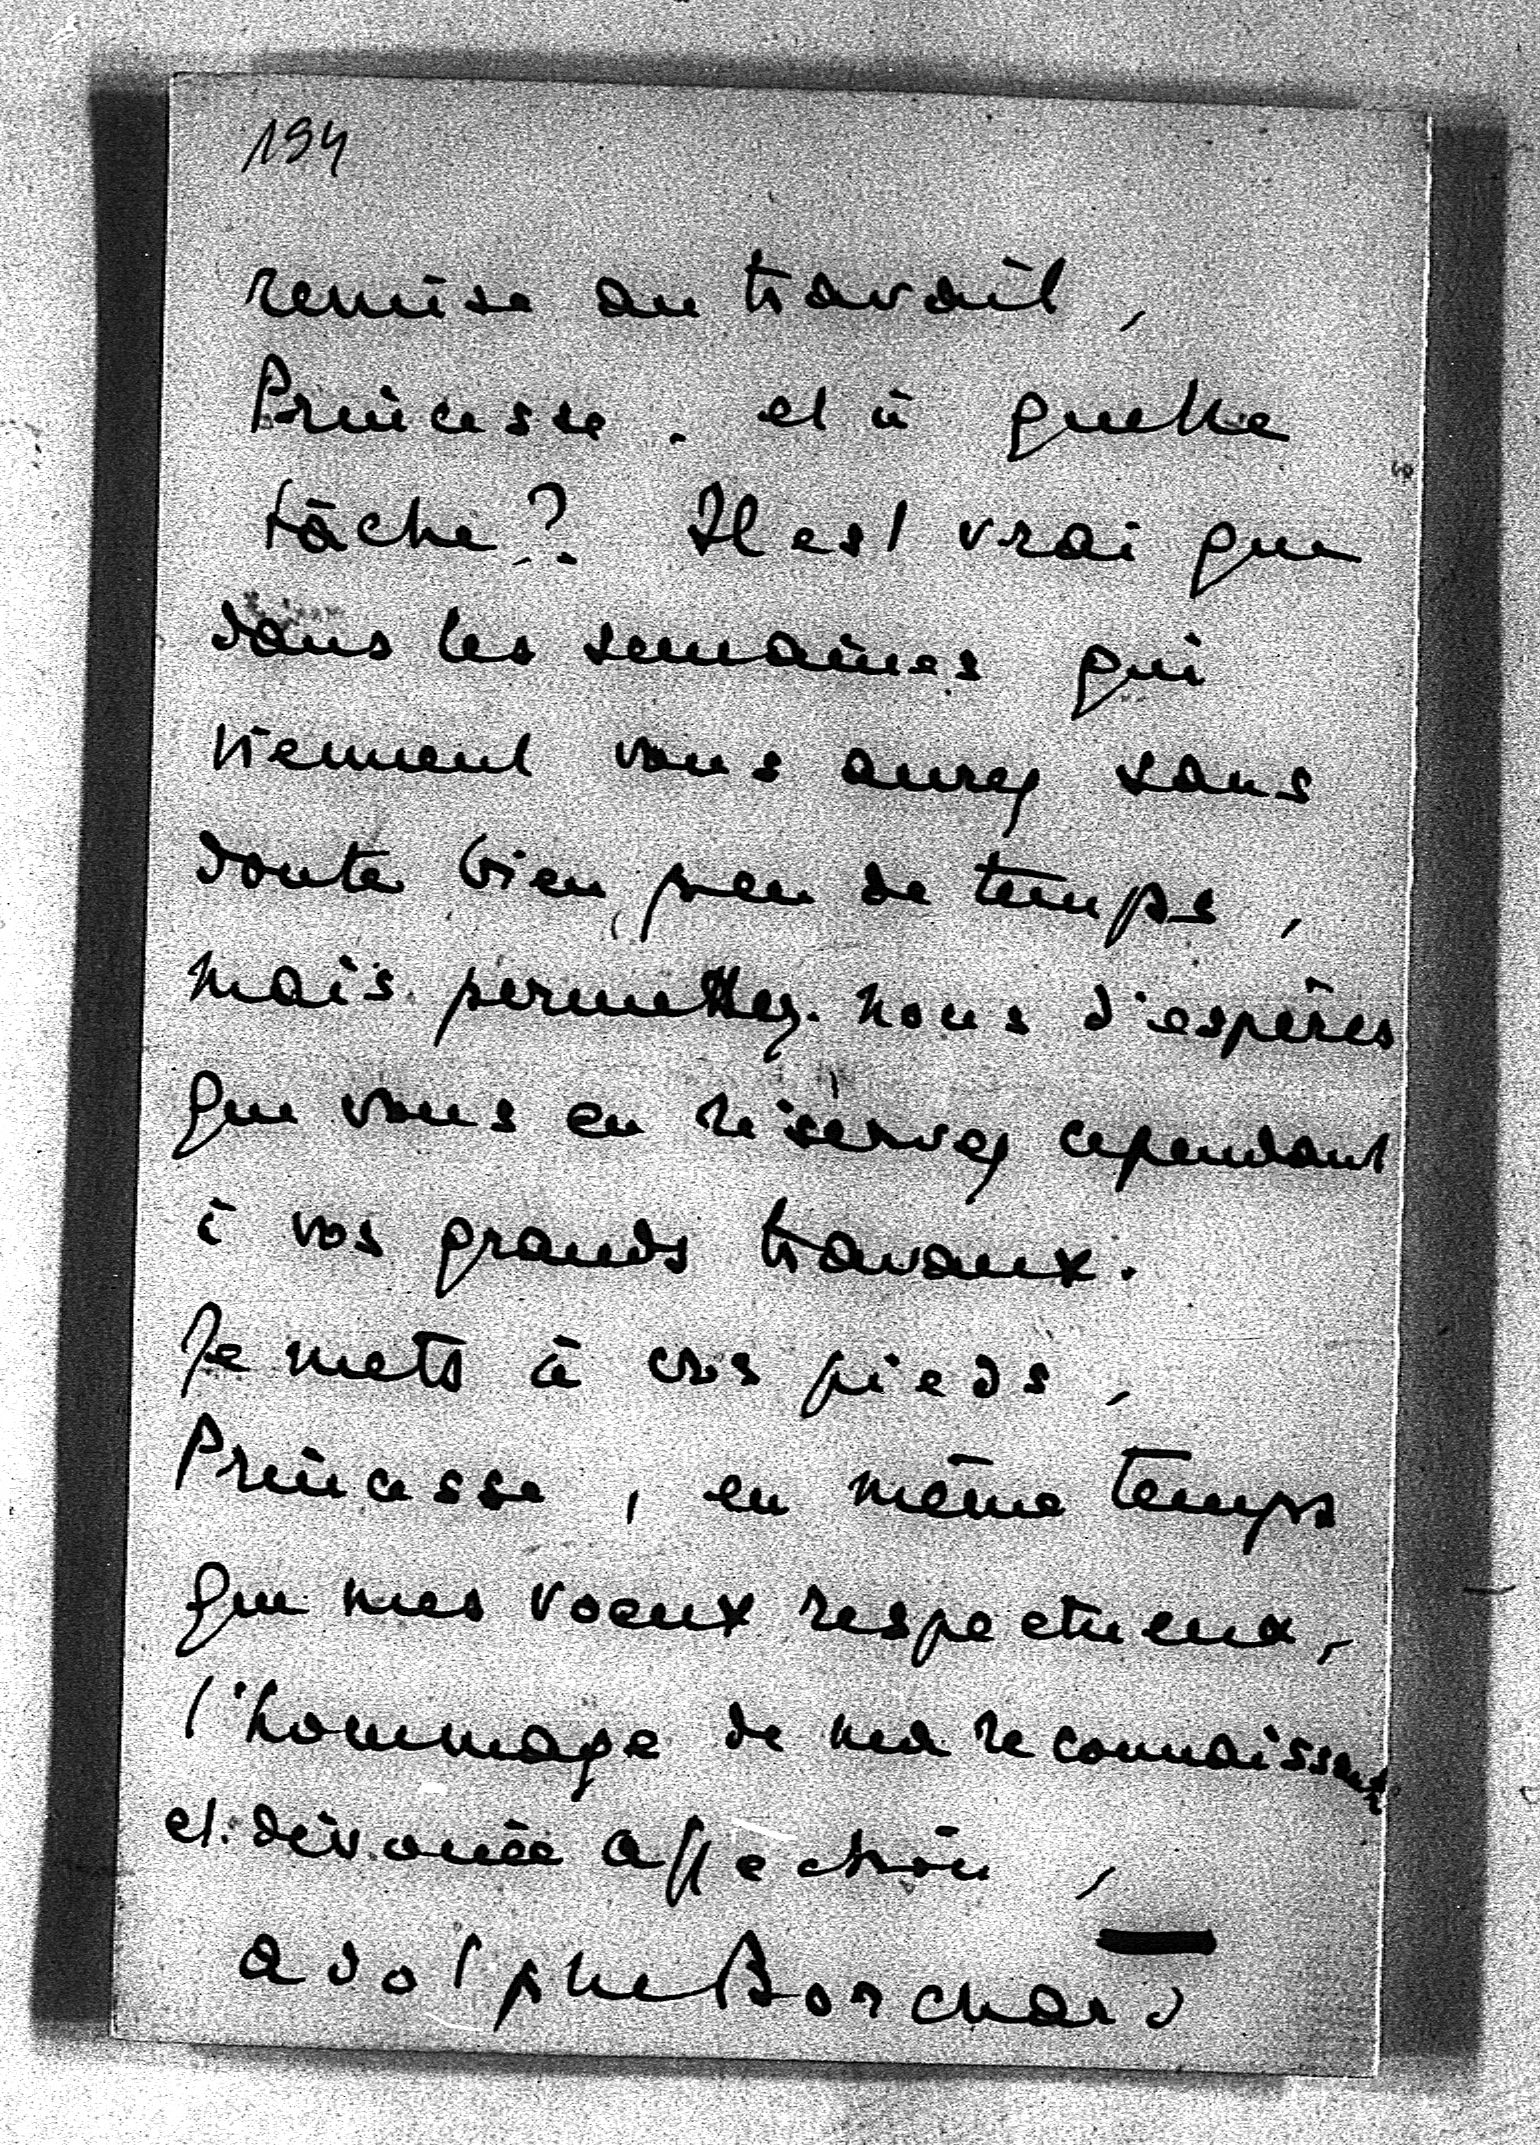 194
remise au travail,
Princesse. et à quelle
tâche? Il est vrai que
dans les semaines qui
viennent vous aurez sans
doute bien peu de temps,
mais permettez-nous d'espérer
que vous en réservez cependant
à vos grands travaux.
Je mets à vos pieds,
Princesse, en même temps
que mes voeux respectueux,
l'hommage de ma reconnaissante
et dévouée affection,
Adolphe Borchard